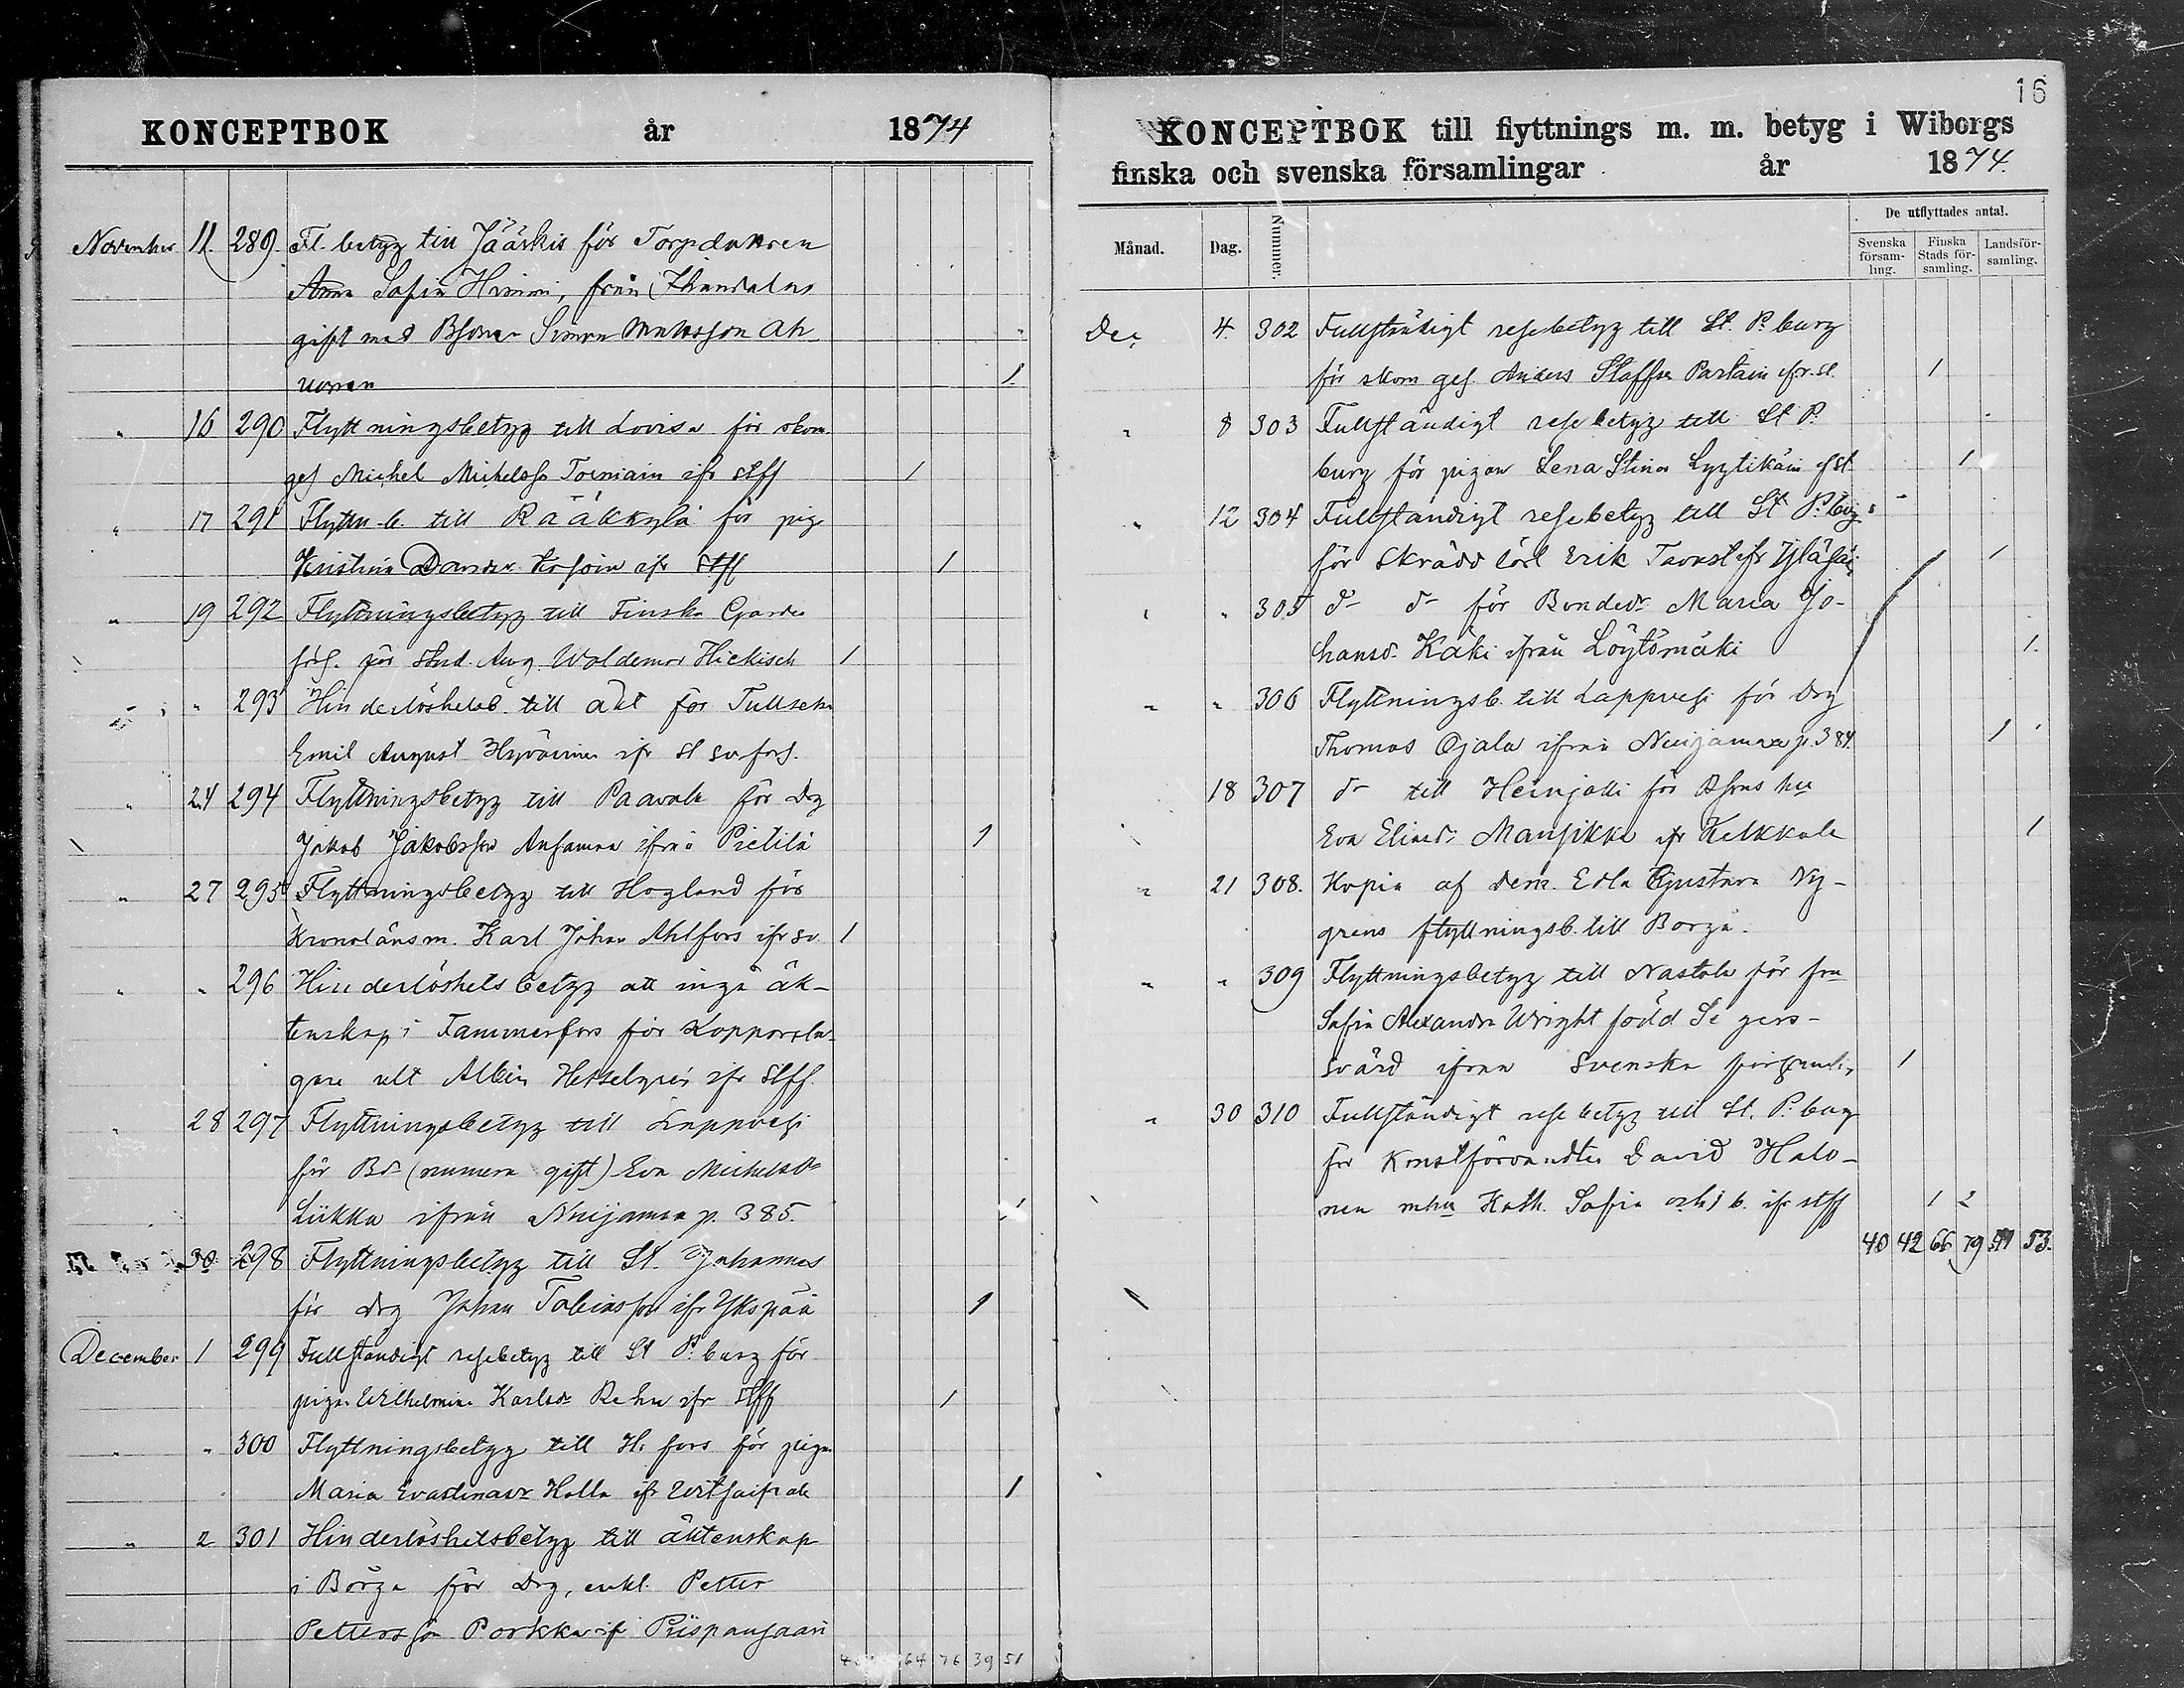 KONCEPTBOK år 1874
November 11. 289. Fl. betyg till Jääskis för Torpdottren
Anna Sofia Himmi, från Ihandalas
gift med Bson Simon Mattsson Ah
vonen 1.
" 16 290 Flyttningsbetyg till Lovisa för skom.
ges Michel Michelsson Torniain ifr stff 1
" 17 291 Flyttn-b. till Rääkkylä för piga
Kristina Dansdr Kosoin ifr Stff 1
" 19 292 Flyttningsbetyg till Finska Garde
förs. för Stud. Aug. Woldemar Hickisch 1
" " 293 Hinderlöshetsb. till äkt för Tullsekr
Emil August Hyväinen ifr st sv fors.
" 24 294 Flyttningsbetyg till Paavola för Drg
Jakob Jakobsson Ansamaa ifrån Pietilä 1
" 27 295 Flyttningsbetyg till Hogland för
Kronolänsm. Karl Johan Ahlfors ifr sv. 1
" " 296 Hinderlöshetsbetyg att ingå äk-
tenskap i Tammerfors för Kopparsla-
gare Albin Hesselgren ifr Stff.
" 28 297 Flyttningsbetyg till Lappvesi
för Bd (numera gift) Eva Michelsdr
Liikka ifrån Nuijamaa p. 385. 1
30 298 Flyttningsbetyg till St. Johannes
för drg Johan Tobiasson ifr Ykspää 1
December 1 299 Fullständigt resebetyg till St P:burg för
pigan Wilhelmina Karlsdr Rehn ifr Stff 1
" " 300 Flyttningsbetyg till H:fors för pigan
Maria Evastinasdr Halla ifr 1
" 2 301 Hinderlöshetsbetyg till äktenskap
i Borgå för drg, enkl. Petter
Pettersson Porkka if Piispansaari
64 76 39 51
16
KONCEPTBOK till flyttnings m. m. betyg i Wiborgs
finska och svenska församlingar år 1874.
De utflyttades antal.
Månad. Dag. Nummer. Svenska församling. Finska Stads församling. Landsförsamling.
Dec 4. 302 Fullständigt resebetyg till St. P:burg
för skom ges. Anders Staffsn Partain ifr. st. 1
" 8 303 Fullständigt resebetyg till St P.
burg för pigan Lena Stina Lyytikäin ifst 1
" 12 304 Fullständigt resebetyg till St P:bg
för Skrädd lärl Erik Tavast ifr Yläsäi 1
" " 305 do do för Bondedr Maria Jo-
hansd. Käki ifrån Löytömäki 1.
" " 306 Flyttningsb. till Lappvesi för Drg
Thomas Ojala ifrån Nuijamaa p. 384. 1
18 307 do till Heinjoki för Bsons hu
Eva Eliasdr Mansikka ifr Kelkkala 1
" 21 308. Kopia af Dem. Edla Gustava Ny-
grens flyttningsb. till Borgå.
" " 309 Flyttningsbetyg till Nastola för fru
Sofia Alexandra Wright född Segers-
svärd ifrån Svenska församlin 1
" 30 310 Fullständigt resebetyg till St. P:burg
för Konstförvandten David Halo-
nen mhu Kath. Sofia och 1 b. ifr stff 1 2
40 42 66 79 41 53.